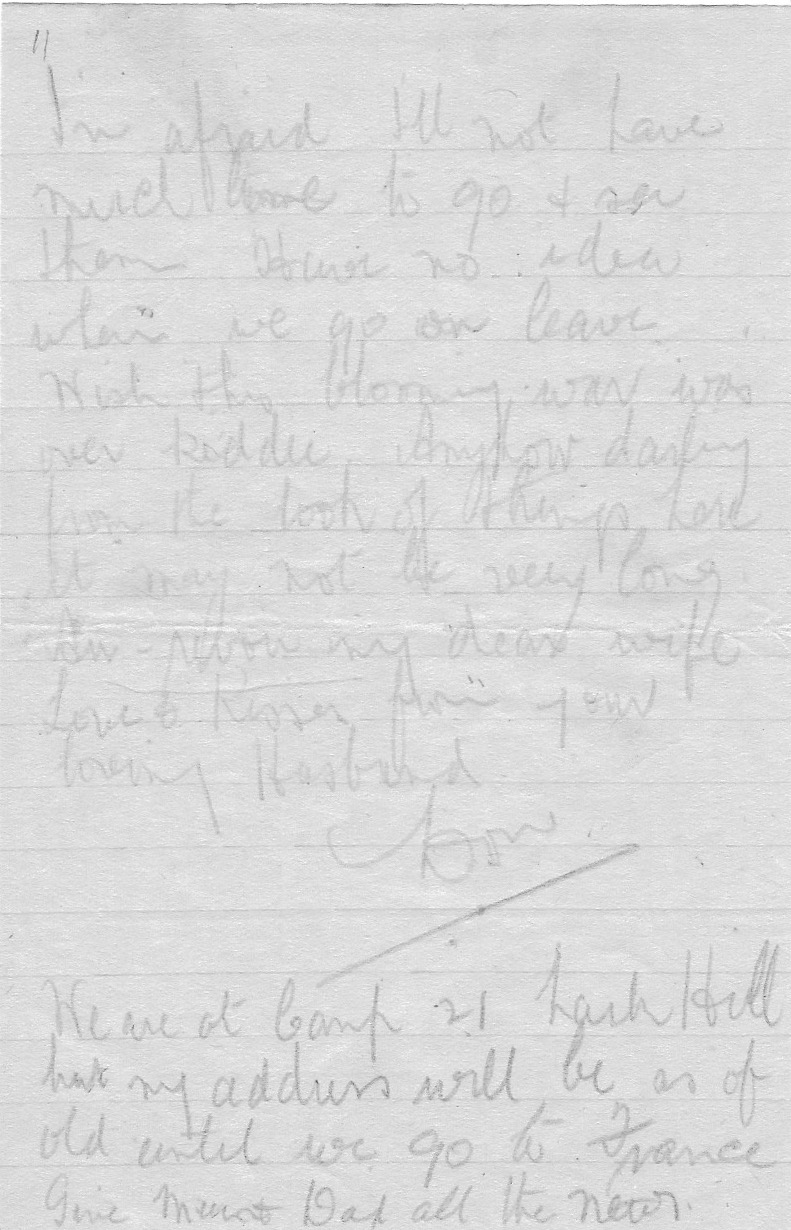 11
I'm afraid I'll not have
much time to go & see
them Have no idea
when we go on leave.
Wish this blooming war was
over kiddie. Anyhow darling
from the look of things here
it may not be very long.
Au-revoir my dear wife
Love & Kisses from your
loving Husband
Don
We are at Camp 21 Lark Hill
but my address will be as of
old until we go to France
Give Mum & Dad all the news.